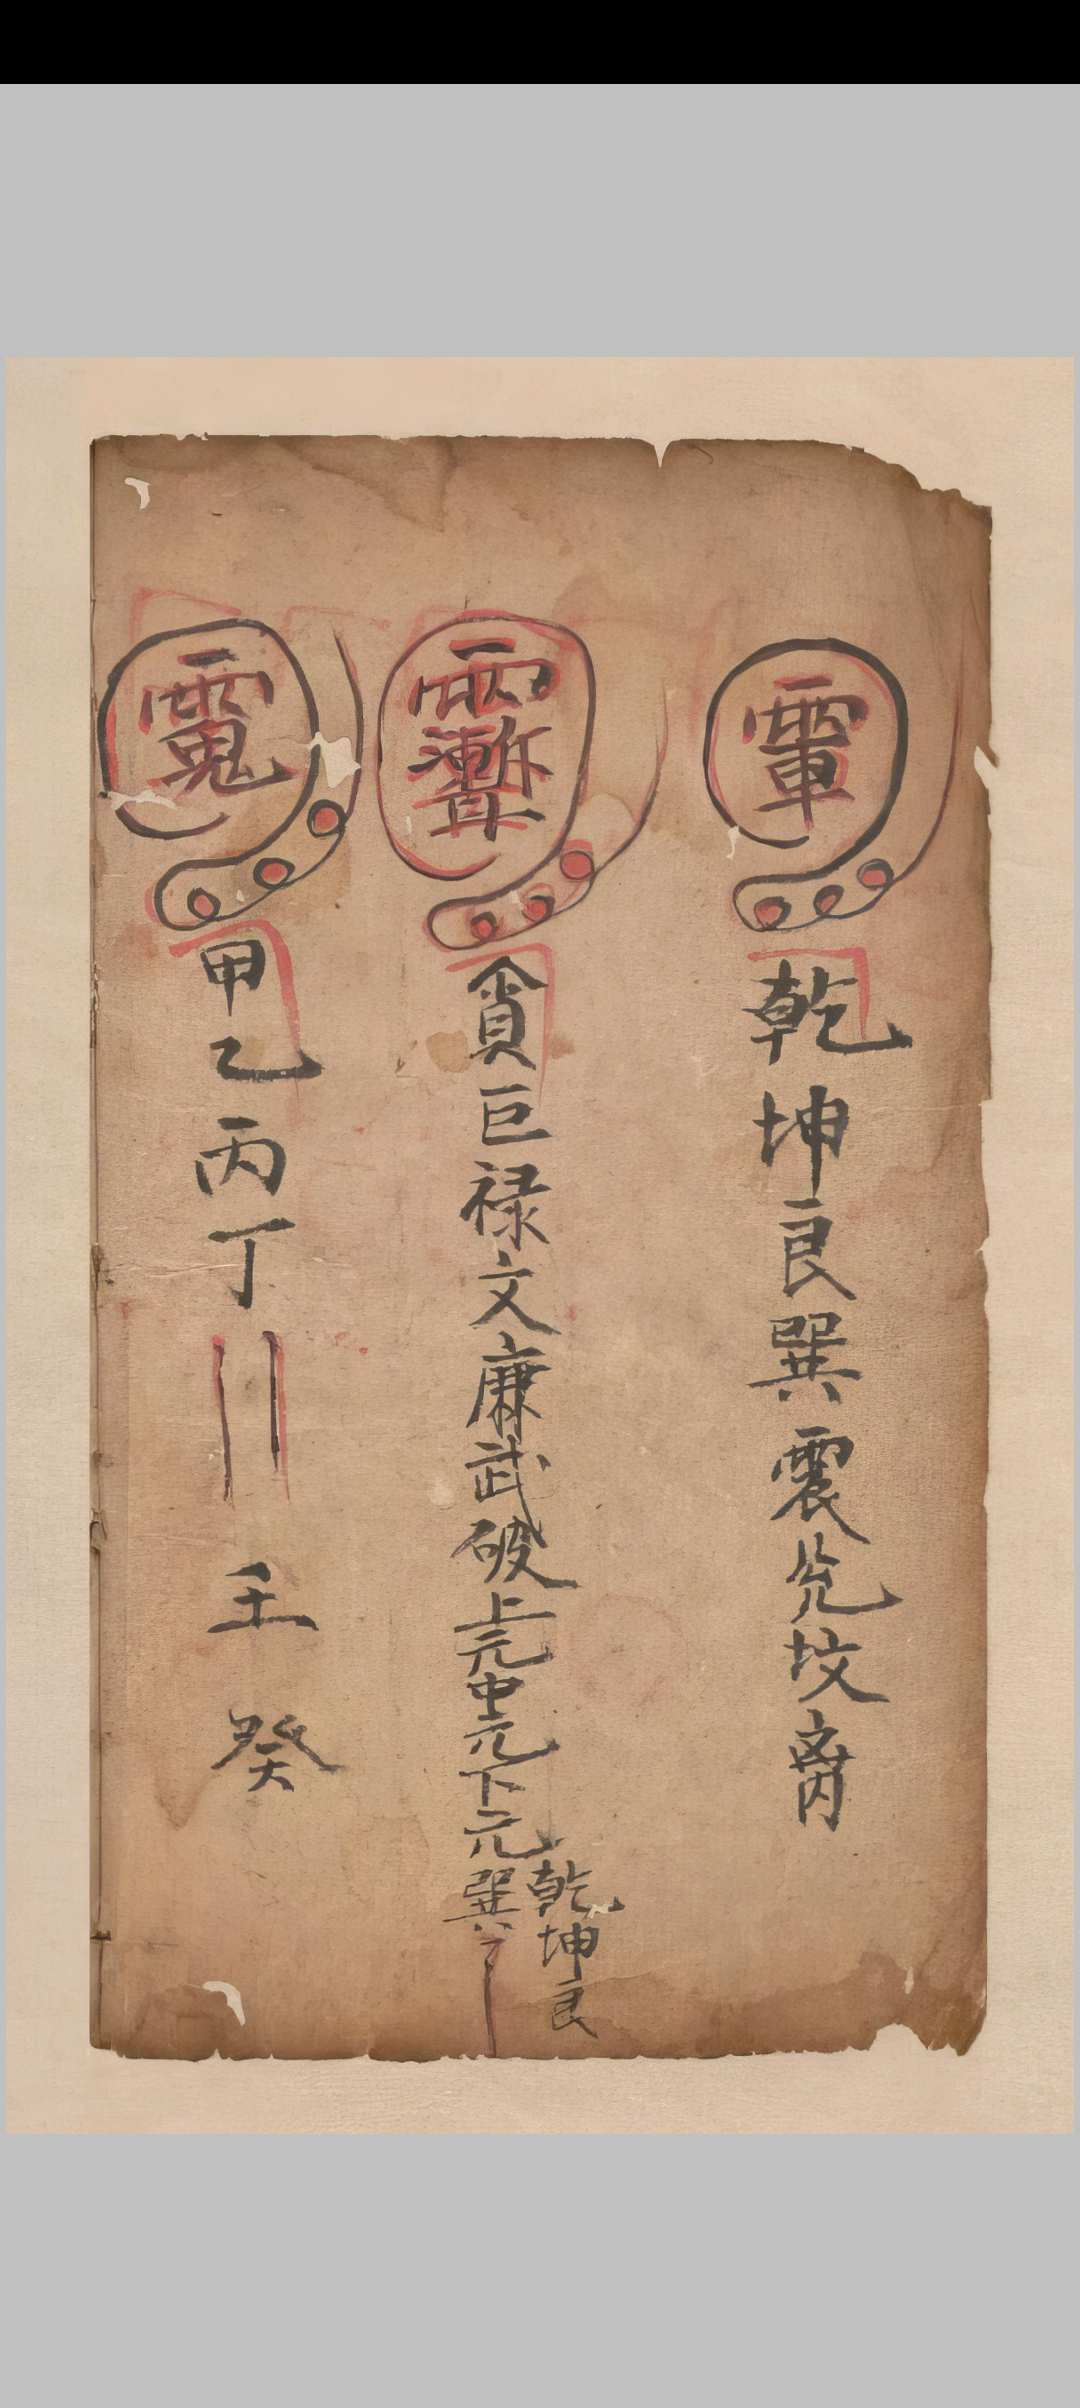 乾坤良巽震兊坟离
貪巨禄文廉武破上元中元下元
乾坤良
巽
甲乙丙丁
壬癸